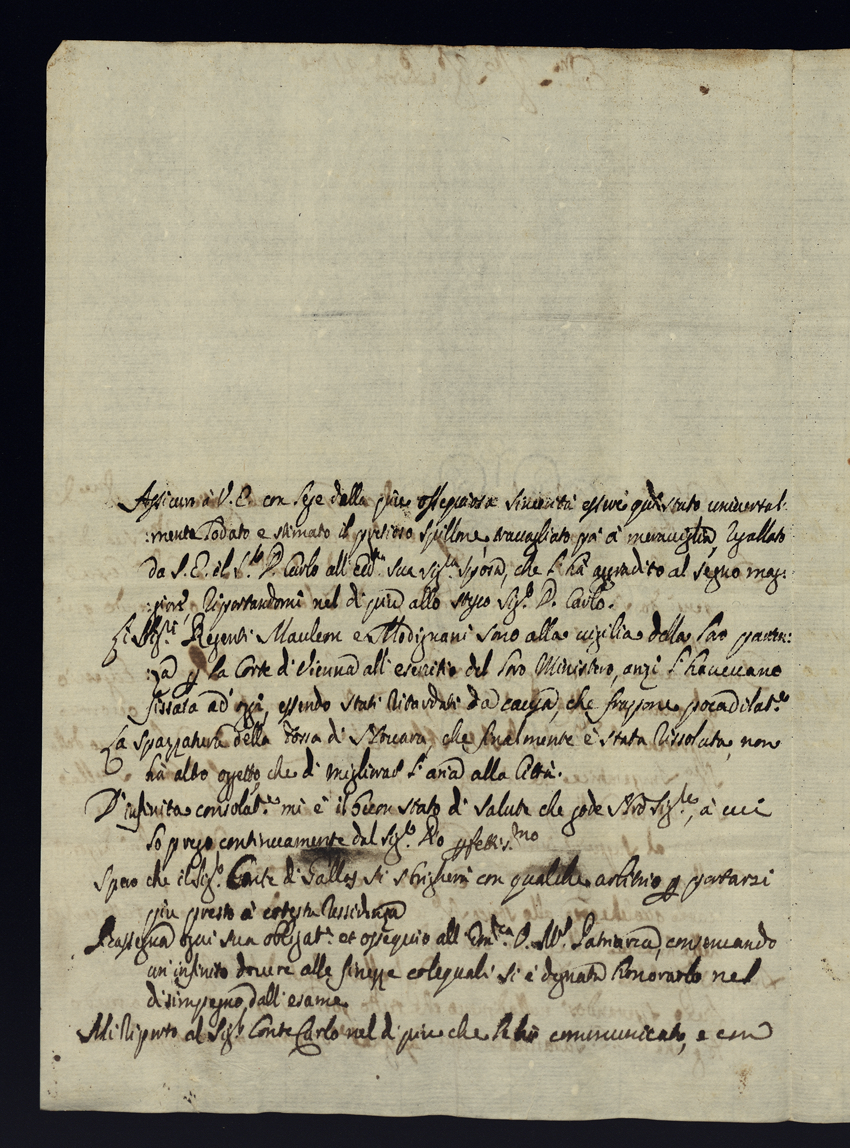 Assicuro à V. E. con fede della più ossequiosa sincerità essere quì stato universal:
:mente lodato e stimato il prezioso spillone, travagliato poi à meraviglia, regallato
da S. E. il S.r D. Carlo all' sua Sig.ra Sposa, che l'hà aggradito al segno mag:
:giore, riportandomi nel di più allo stesso Sig.r D. Carlo.
Li SS.ri Regenti Mauleon e Modignani sono alla vigilia della loro parten:
:za p la Corte di Vienna all' esercitio del loro Ministero, anzi l'havevano
fissata ad' oggi, essendo stati ritardati da
La spazzatura della fossa di che finalmente è stata rissoluta, non
hà altro oggetto, che di migliorar l' aria alla Città.
D'infinita consolat.ne mi è il buon stato di salute che gode à cui
lo prego continuamente dal Sig.r
Spero che il Sig.r Conte di Gallas si sbrigherà con qualche arbitrio p portarsi
più presto à cotesta ressidenza
Rassegna ogni sua obligat.e et ossequio all' Patriarca, conservando
un' infinito dovere alle finezze colequali si è degnata honorarlo nel
disimpegno dall' esame.
Mi riporto al Sig.r Conte Carlo nel di più che hò communicato, e con